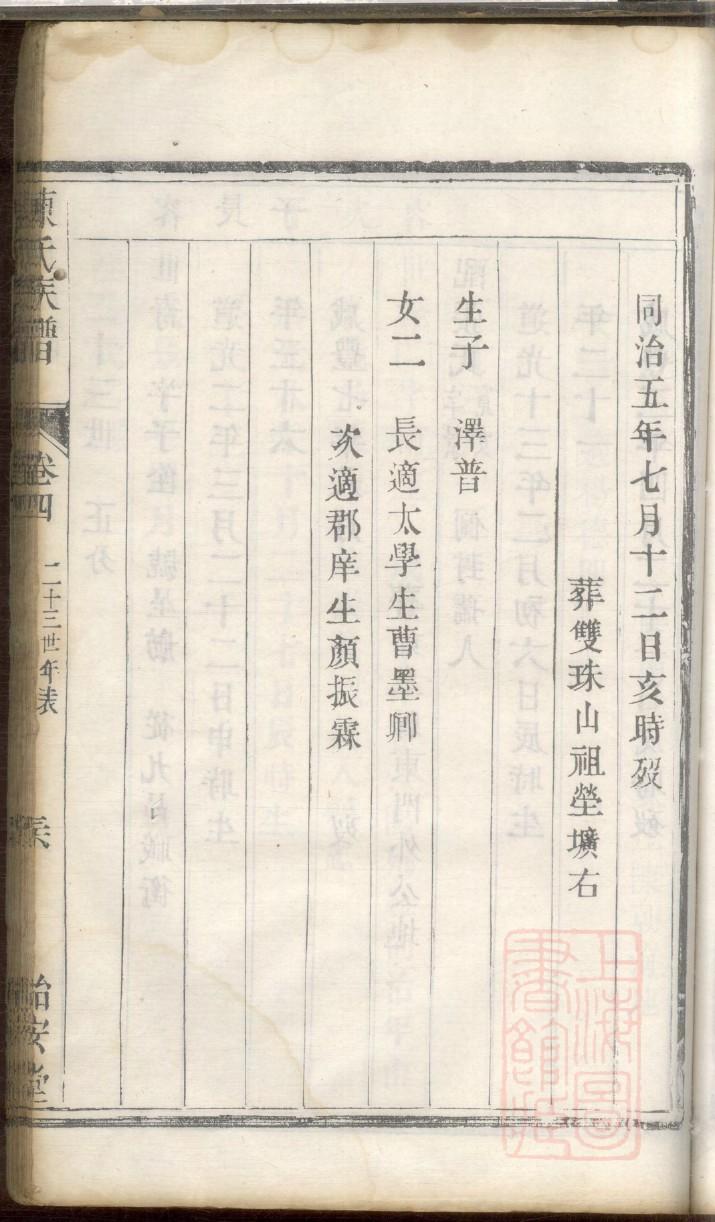 同治五年七月十二日亥時歿
葬雙珠山祖塋壙右
生子　澤普
女二　長適太學生曹墨卿
次適郡庠生顏振霖
氏族譜
卷四
二十三世年表
怡安堂
上海圖書館藏